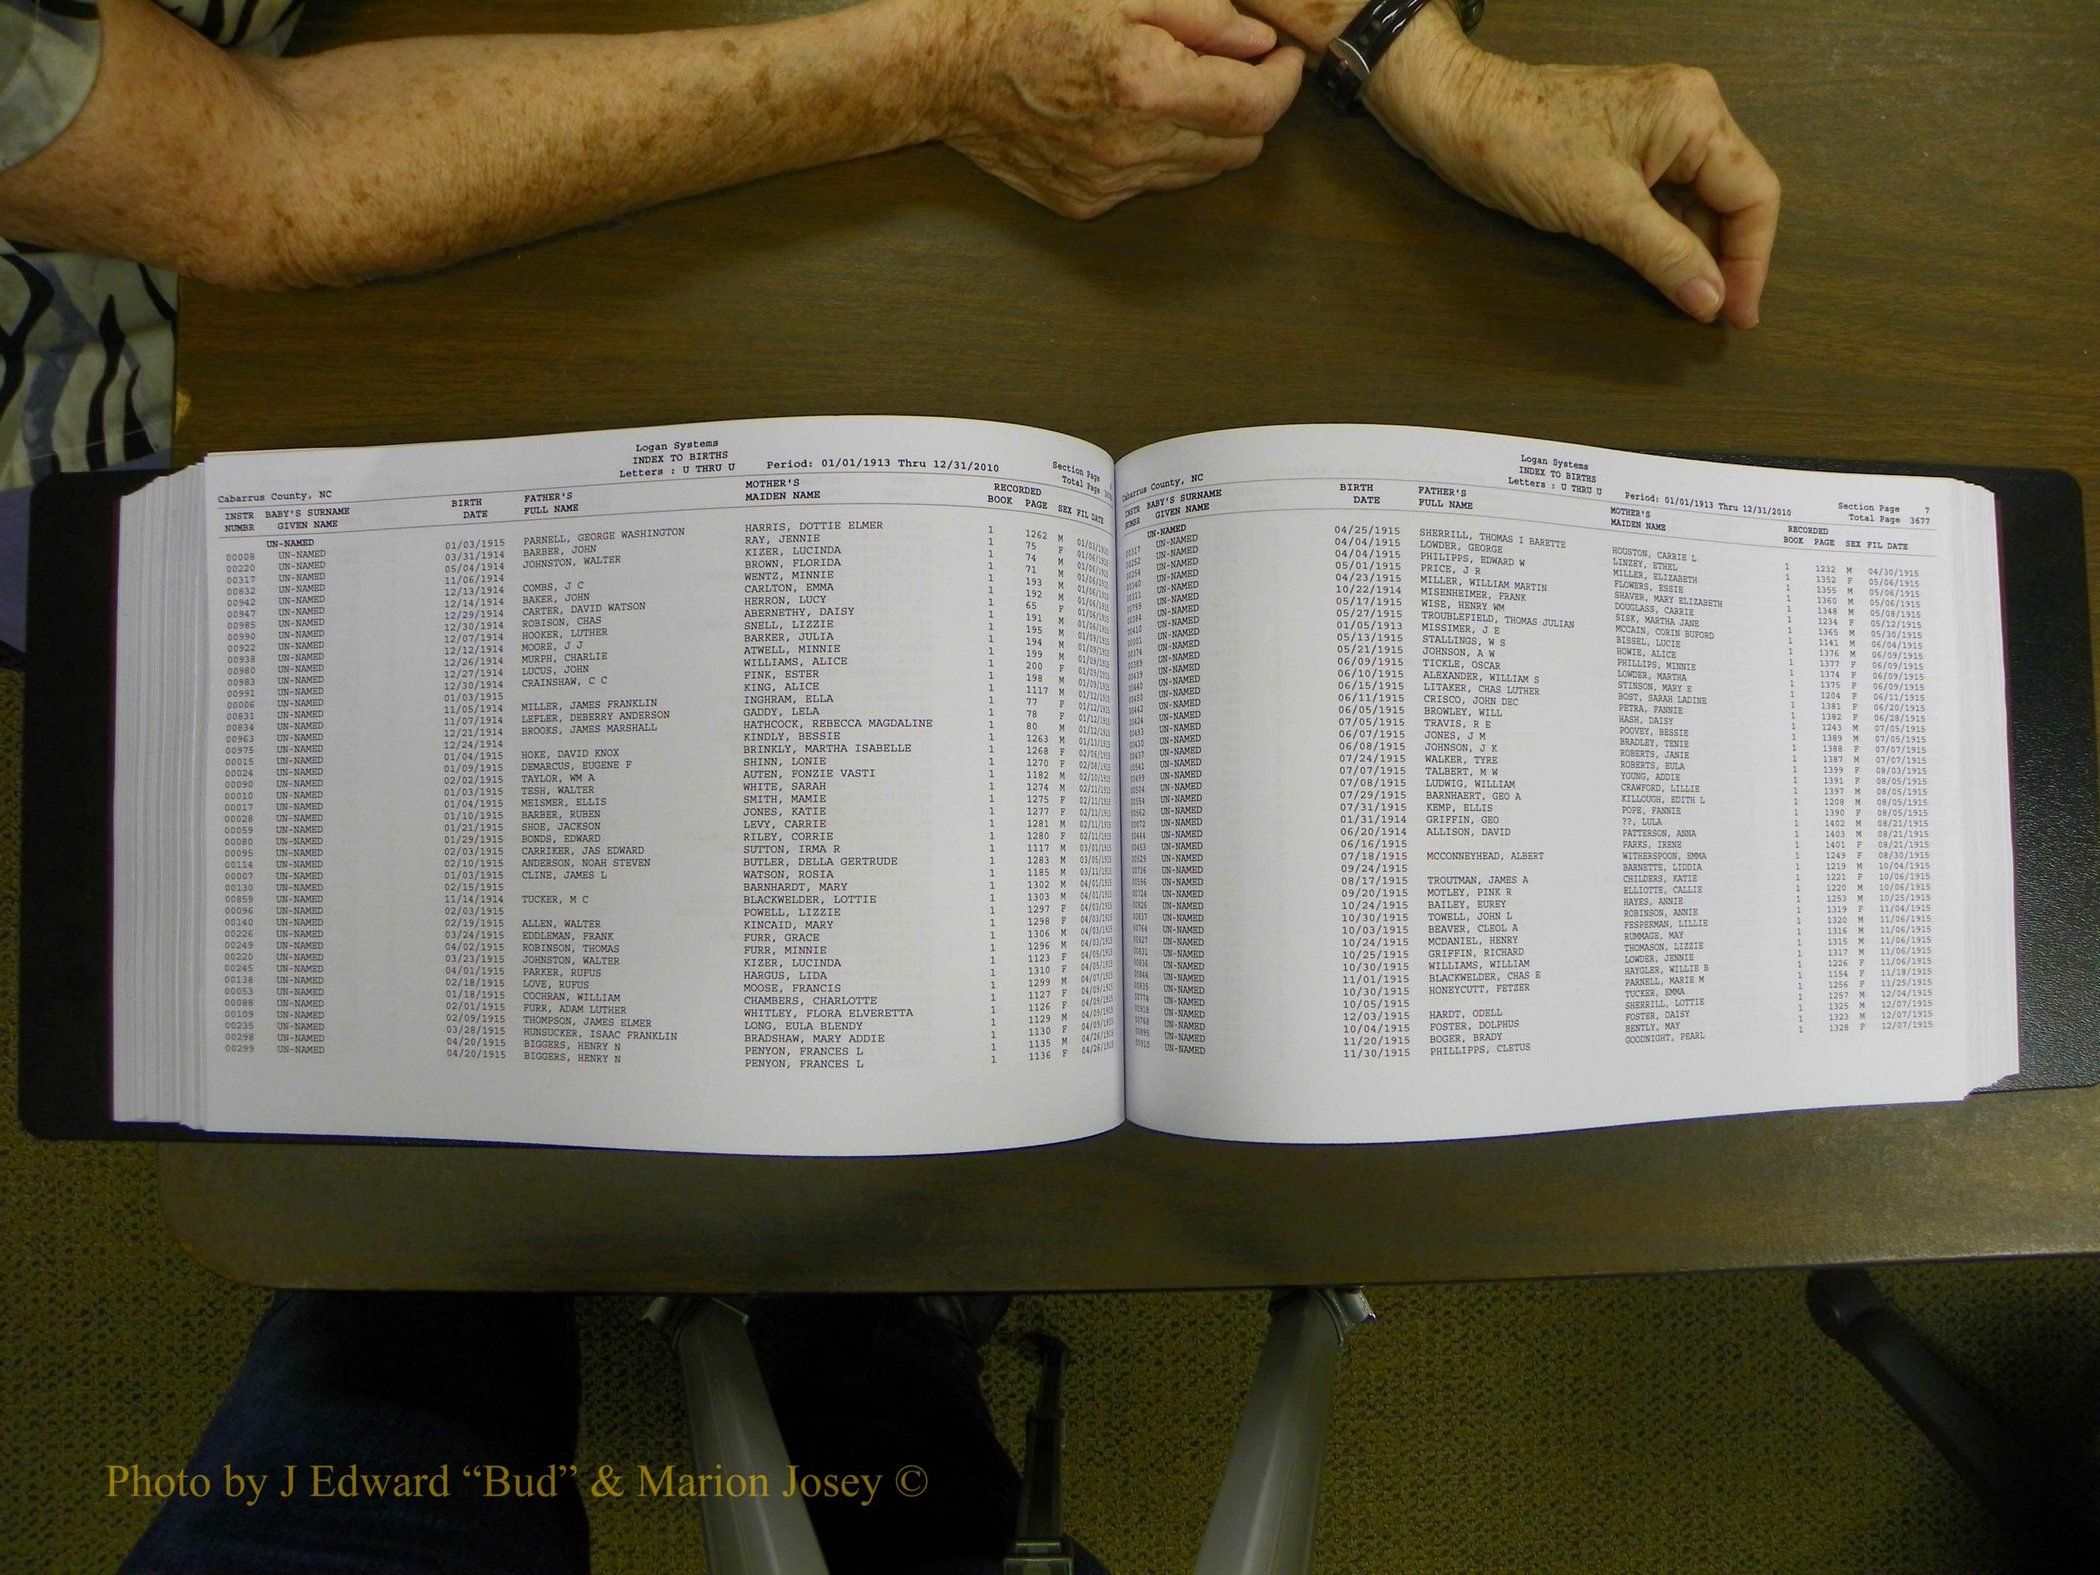 Logan Systems
INDEX TO BIRTHS
Letters : U THRU U Period: 01/01/1913 Thru 12/31/2010
Section Page
Total Page
Cabarrus County, NC
INSTR NUMBR BABY'S SURNAME GIVEN NAME BIRTH DATE FATHER'S FULL NAME MOTHER'S MAIDEN NAME RECORDED BOOK PAGE SEX FIL DATE
UN-NAMED
00008 UN-NAMED 01/03/1915 PARNELL, GEORGE WASHINGTON HARRIS, DOTTIE ELMER 1 1262 M
00220 UN-NAMED 03/31/1914 BARBER, JOHN RAY, JENNIE 1 75 F
00317 UN-NAMED 05/04/1914 JOHNSTON, WALTER KIZER, LUCINDA 1 74 M
00832 UN-NAMED 11/06/1914 BROWN, FLORIDA 1 71 M
00942 UN-NAMED 12/13/1914 COMBS, J C WENTZ, MINNIE 1 193 M
00947 UN-NAMED 12/14/1914 BAKER, JOHN CARLTON, EMMA 1 192 M
00985 UN-NAMED 12/29/1914 CARTER, DAVID WATSON HERRON, LUCY 1 65 F
00990 UN-NAMED 12/30/1914 ROBISON, CHAS ABERNETHY, DAISY 1 191 M
00922 UN-NAMED 12/07/1914 HOOKER, LUTHER SNELL, LIZZIE 1 195 M
00938 UN-NAMED 12/12/1914 MOORE, J J BARKER, JULIA 1 194 M
00980 UN-NAMED 12/26/1914 MURPH, CHARLIE ATWELL, MINNIE 1 199 M
00983 UN-NAMED 12/27/1914 LUCUS, JOHN WILLIAMS, ALICE 1 200 F
00991 UN-NAMED 12/30/1914 CRAINSHAW, C C FINK, ESTER 1 198 M
00006 UN-NAMED 01/03/1915 KING, ALICE 1 1117 M
00831 UN-NAMED 11/05/1914 MILLER, JAMES FRANKLIN INGHRAM, ELLA 1 77 F
00834 UN-NAMED 11/07/1914 LEFLER, DEBERRY ANDERSON GADDY, LELA 1 78 F
00963 UN-NAMED 12/21/1914 BROOKS, JAMES MARSHALL HATHCOCK, REBECCA MAGDALINE 1 80 M
00975 UN-NAMED 12/24/1914 KINDLY, BESSIE 1 1263 M
00015 UN-NAMED 01/04/1915 HOKE, DAVID KNOX BRINKLY, MARTHA ISABELLE 1 1268 F
00024 UN-NAMED 01/09/1915 DEMARCUS, EUGENE F SHINN, LONIE 1 1270 F
00090 UN-NAMED 02/02/1915 TAYLOR, WM A AUTEN, FONZIE VASTI 1 1182 M
00010 UN-NAMED 01/03/1915 TESH, WALTER WHITE, SARAH 1 1274 M
00017 UN-NAMED 01/04/1915 MEISMER, ELLIS SMITH, MAMIE 1 1275 F
00028 UN-NAMED 01/10/1915 BARBER, RUBEN JONES, KATIE 1 1277 F
00059 UN-NAMED 01/21/1915 SHOE, JACKSON LEVY, CARRIE 1 1281 M
00080 UN-NAMED 01/29/1915 BONDS, EDWARD RILEY, CORRIE 1 1280 F
00095 UN-NAMED 02/03/1915 CARRIKER, JAS EDWARD SUTTON, IRMA R 1 1117 M
00114 UN-NAMED 02/10/1915 ANDERSON, NOAH STEVEN BUTLER, DELLA GERTRUDE 1 1283 M
00007 UN-NAMED 01/03/1915 CLINE, JAMES L WATSON, ROSIA 1 1185 M
00130 UN-NAMED 02/15/1915 BARNHARDT, MARY 1 1302 M
00859 UN-NAMED 11/14/1914 TUCKER, M C BLACKWELDER, LOTTIE 1 1303 M
00096 UN-NAMED 02/03/1915 POWELL, LIZZIE 1 1297 F
00140 UN-NAMED 02/19/1915 ALLEN, WALTER KINCAID, MARY 1 1298 F
00226 UN-NAMED 03/24/1915 EDDLEMAN, FRANK FURR, GRACE 1 1306 M
00249 UN-NAMED 04/02/1915 ROBINSON, THOMAS FURR, MINNIE 1 1296 M
00220 UN-NAMED 03/23/1915 JOHNSTON, WALTER KIZER, LUCINDA 1 1123 F
00245 UN-NAMED 04/01/1915 PARKER, RUFUS HARGUS, LIDA 1 1310 F
00138 UN-NAMED 02/18/1915 LOVE, RUFUS MOOSE, FRANCIS 1 1299 M
00053 UN-NAMED 01/18/1915 COCHRAN, WILLIAM CHAMBERS, CHARLOTTE 1 1127 F
00088 UN-NAMED 02/01/1915 FURR, ADAM LUTHER WHITLEY, FLORA ELVERETTA 1 1126 F
00109 UN-NAMED 02/09/1915 THOMPSON, JAMES ELMER LONG, EULA BLENDY 1 1129 M
00235 UN-NAMED 03/28/1915 HUNSUCKER, ISAAC FRANKLIN BRADSHAW, MARY ADDIE 1 1130 F
00298 UN-NAMED 04/20/1915 BIGGERS, HENRY N PENYON, FRANCES L 1 1135 M 04/26/1915
00299 UN-NAMED 04/20/1915 BIGGERS, HENRY N PENYON, FRANCES L 1 1136 F 04/26/1915
Logan Systems
INDEX TO BIRTHS
Letters : U THRU U Period: 01/01/1913 Thru 12/31/2010
Section Page 7
Total Page 3677
Cabarrus County, NC
INSTR NUMBR BABY'S SURNAME GIVEN NAME BIRTH DATE FATHER'S FULL NAME MOTHER'S MAIDEN NAME RECORDED BOOK PAGE SEX FIL DATE
UN-NAMED
00317 UN-NAMED 04/25/1915 SHERRILL, THOMAS I BARETTE HOUSTON, CARRIE L 1 1232 M 04/30/1915
00252 UN-NAMED 04/04/1915 LOWDER, GEORGE LINZEY, ETHEL 1 1352 F 05/06/1915
00254 UN-NAMED 04/04/1915 PHILIPPS, EDWARD W MILLER, ELIZABETH 1 1355 M 05/06/1915
00340 UN-NAMED 05/01/1915 PRICE, J R FLOWERS, ESSIE 1 1360 M 05/06/1915
00311 UN-NAMED 04/23/1915 MILLER, WILLIAM MARTIN SHAVER, MARY ELIZABETH 1 1348 M 05/08/1915
00799 UN-NAMED 10/22/1914 MISENHEIMER, FRANK DOUGLASS, CARRIE 1 1234 F 05/12/1915
00384 UN-NAMED 05/17/1915 WISE, HENRY WM SISK, MARTHA JANE 1 1365 M 05/30/1915
00410 UN-NAMED 05/27/1915 TROUBLEFIELD, THOMAS JULIAN MCCAIN, CORIN BUFORD 1 1141 M 06/04/1915
00001 UN-NAMED 01/05/1913 MISSIMER, J E BISSEL, LUCIE 1 1376 M 06/09/1915
00374 UN-NAMED 05/13/1915 STALLINGS, W S HOWIE, ALICE 1 1377 F 06/09/1915
00389 UN-NAMED 05/21/1915 JOHNSON, A W PHILLIPS, MINNIE 1 1374 F 06/09/1915
00439 UN-NAMED 06/09/1915 TICKLE, OSCAR LOWDER, MARTHA 1 1375 F 06/09/1915
00440 UN-NAMED 06/10/1915 ALEXANDER, WILLIAM S STINSON, MARY E 1 1204 F 06/11/1915
00450 UN-NAMED 06/15/1915 LITAKER, CHAS LUTHER BOST, SARAH LADINE 1 1381 F 06/20/1915
00442 UN-NAMED 06/11/1915 CRISCO, JOHN DEC PETRA, FANNIE 1 1382 F 06/28/1915
00424 UN-NAMED 06/05/1915 BROWLEY, WILL HASH, DAISY 1 1243 M 07/05/1915
00493 UN-NAMED 07/05/1915 TRAVIS, R E POOVEY, BESSIE 1 1389 M 07/05/1915
00430 UN-NAMED 06/07/1915 JONES, J M BRADLEY, TENIE 1 1388 F 07/07/1915
00437 UN-NAMED 06/08/1915 JOHNSON, J K ROBERTS, JANIE 1 1387 M 07/07/1915
00541 UN-NAMED 07/24/1915 WALKER, TYRE ROBERTS, EULA 1 1399 F 08/03/1915
00499 UN-NAMED 07/07/1915 TALBERT, M W YOUNG, ADDIE 1 1391 F 08/05/1915
00504 UN-NAMED 07/08/1915 LUDWIG, WILLIAM CRAWFORD, LILLIE 1 1397 M 08/05/1915
00554 UN-NAMED 07/29/1915 BARNHAERT, GEO A KILLOUGH, EDITH L 1 1208 M 08/05/1915
00562 UN-NAMED 07/31/1915 KEMP, ELLIS POPE, FANNIE 1 1390 F 08/05/1915
00072 UN-NAMED 01/31/1914 GRIFFIN, GEO ??, LULA 1 1402 M 08/21/1915
00444 UN-NAMED 06/20/1914 ALLISON, DAVID PATTERSON, ANNA 1 1403 M 08/21/1915
00453 UN-NAMED 06/16/1915 PARKS, IRENE 1 1401 F 08/21/1915
00529 UN-NAMED 07/18/1915 MCCONNEYHEAD, ALBERT WITHERSPOON, EMMA 1 1249 F 08/30/1915
00736 UN-NAMED 09/24/1915 BARNETTE, LIDDIA 1 1219 M 10/04/1915
00596 UN-NAMED 08/17/1915 TROUTMAN, JAMES A CHILDERS, KATIE 1 1221 F 10/06/1915
00724 UN-NAMED 09/20/1915 MOTLEY, PINK R ELLIOTTE, CALLIE 1 1220 M 10/06/1915
00826 UN-NAMED 10/24/1915 BAILEY, EUREY HAYES, ANNIE 1 1253 M 10/25/1915
00837 UN-NAMED 10/30/1915 TOWELL, JOHN L ROBINSON, ANNIE 1 1319 F 11/04/1915
00764 UN-NAMED 10/03/1915 BEAVER, CLEOL A FESPERMAN, LILLIE 1 1320 M 11/06/1915
00827 UN-NAMED 10/24/1915 MCDANIEL, HENRY RUMMAGE, MAY 1 1316 M 11/06/1915
00831 UN-NAMED 10/25/1915 GRIFFIN, RICHARD THOMASON, LIZZIE 1 1315 M 11/06/1915
00836 UN-NAMED 10/30/1915 WILLIAMS, WILLIAM LOWDER, JENNIE 1 1317 M 11/06/1915
00844 UN-NAMED 11/01/1915 BLACKWELDER, CHAS E HAYGLER, WILLIE B 1 1226 F 11/06/1915
00835 UN-NAMED 10/30/1915 HONEYCUTT, FETZER PARNELL, MARIE M 1 1154 F 11/18/1915
00774 UN-NAMED 10/05/1915 TUCKER, EMMA 1 1256 F 11/25/1915
00918 UN-NAMED 12/03/1915 HARDT, ODELL SHERRILL, LOTTIE 1 1257 M 12/04/1915
00768 UN-NAMED 10/04/1915 FOSTER, DOLPHUS FOSTER, DAISY 1 1325 M 12/07/1915
00895 UN-NAMED 11/20/1915 BOGER, BRADY BENTLY, MAY 1 1323 M 12/07/1915
00910 UN-NAMED 11/30/1915 PHILLIPPS, CLETUS GOODNIGHT, PEARL 1 1328 F 12/07/1915
Photo by J Edward “Bud” & Marion Josey ©